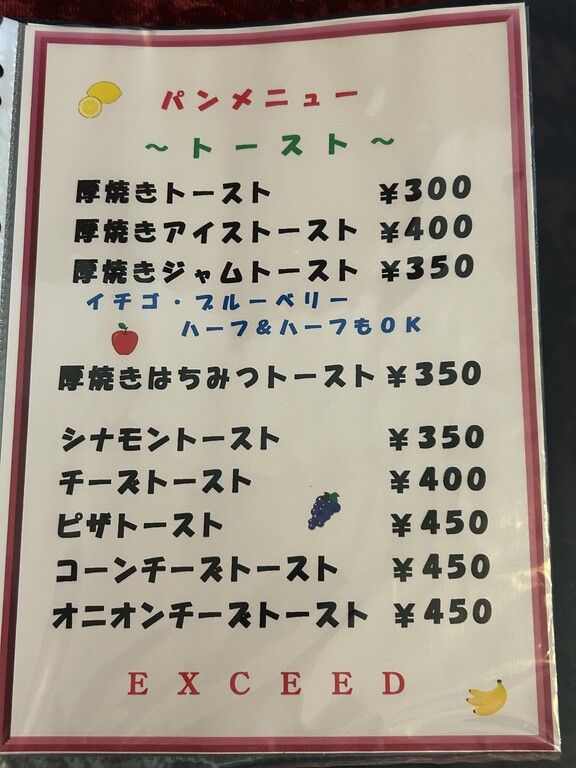 パンメニュー
～トースト～
厚焼きトースト ￥300
厚焼きアイストースト ￥400
厚焼きジャムトースト ￥350
イチゴ・ブルーベリー
ハーフ＆ハーフもOK
厚焼きはちみつトースト ￥350
シナモントースト ￥350
チーズトースト ￥400
ピザトースト ￥450
コーンチーズトースト ￥450
オニオンチーズトースト ￥450
EXCEED